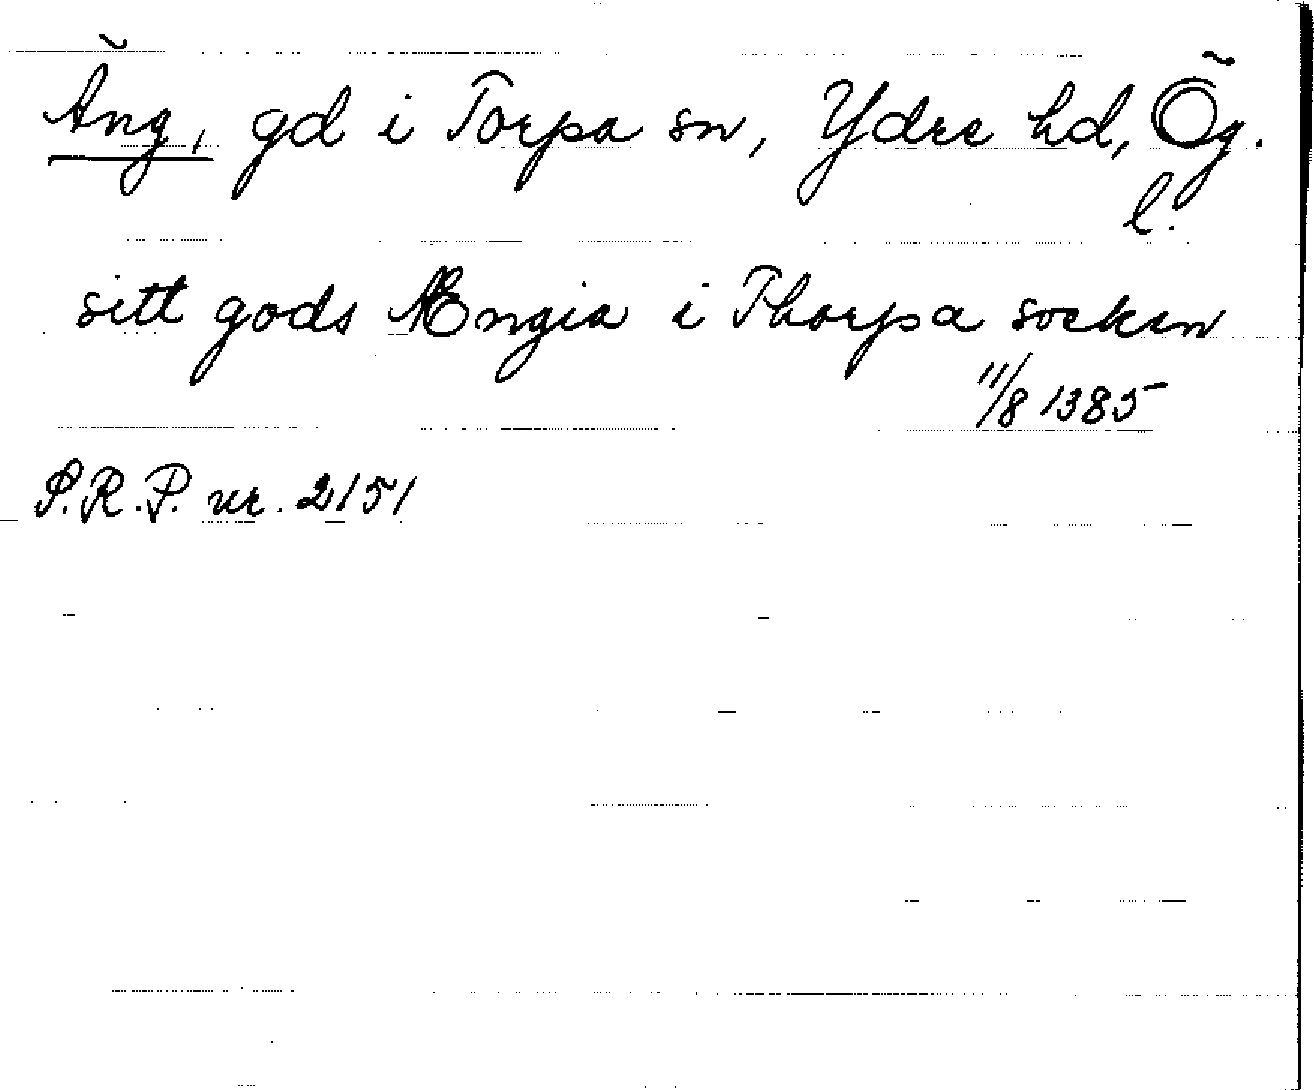 Äng, gd i Torpa sn, Ydre hd, Ög.
l.
sitt gods Ængia i Thorpa socken
11/8 1385
S.R.P. nr. 2151